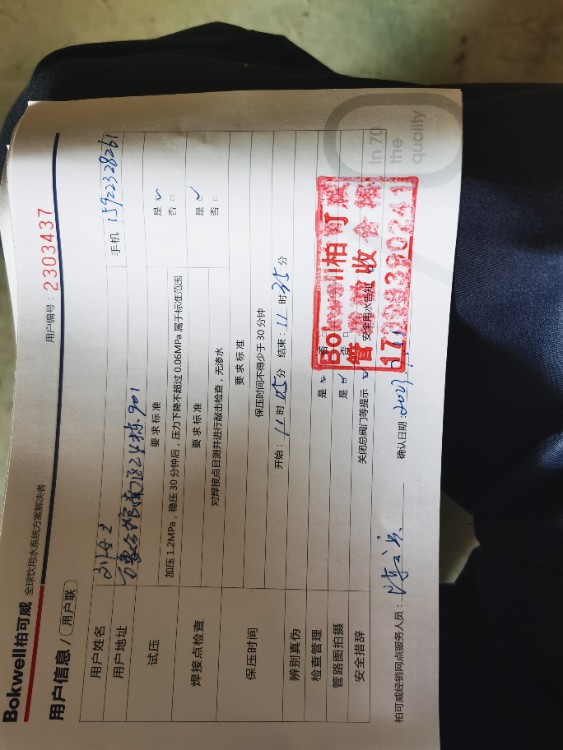 Bokwell柏可威 全球饮用水系统方案解决者
用户信息 / 用户联 用户编号：2303437
用户姓名 刘女士
用户地址 南区24栋901 手机 15922328261
试压 要求标准
加压 1.2MPa，稳压 30 分钟后，压力下降不超过 0.06MPa 属于标准范围 是 ✓ 否 □
焊接点检查 要求标准
对焊接点目测并进行敲击检查，无渗水 是 ✓ 否 □
保压时间 要求标准
保压时间不得少于 30 分钟
开始：11 时 05 分 结束：11 时 35 分
辨别真伪
检查管理 是 否
管路图拍摄 是 否 □
安全措辞 关闭总阀门等提示 安全用水告知
柏可威经销网点服务人员： 确认日期：2023
Bokwell柏可威
管 收
in 70
the
quality